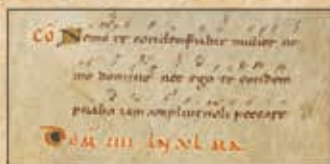 CŌ Nemo te condempnavit mulier ne
mo domine nec ego te condem
pnabo iam amplius noli peccare
DOM IIII IN XL MA